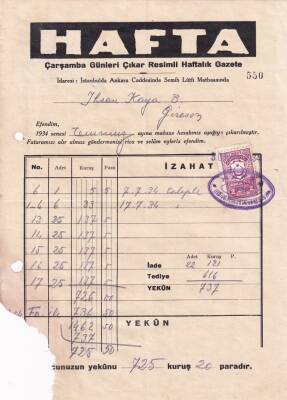 HAFTA
Çarşamba Günleri Çıkar Resimli Haftalık Gazete
İdaresi: İstanbulda Ankara Caddesinde Semih Lûtfi Matbaasında
550
İhsan Kaya B.
Gireson
Efendim,
1934 senesi Temmuz ayına mahsus hesabınız aşağıya çıkarılmıştır.
Faturamızı alır almaz göndermenizi rica ve selâm eyleriz efendim.
No. Adet Kuruş Para İZAHAT
6 1 5 5 7.7.34
1-6 6 33 17.7.34
13 25 137 5
14 25 137 5
15 25 137 5
16 25 137 5
17 25 137 5
Adet Kuruş P.
İade 22 121
Tediye 616
YEKÛN 737
726 50
736 50
1462 50 YEKÛN
737
725 50
cunuzun yekûnu 725 kuruş 20 paradır.